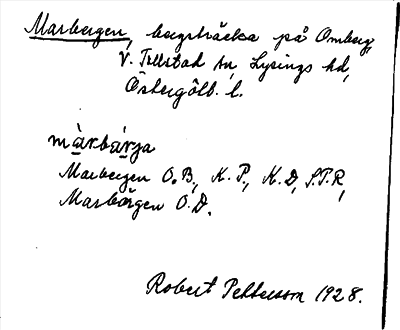 Marbergen, bergsträcka på Omberg,
V. Tollstad sn, Lysings hd,
Östergötl. l.
màrbárja
Marbergen O.B., K.P., K.D., S.P.R,
Marbärgen O.D.
Robert Pettersson 1928.